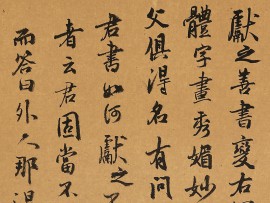 獻之善書變右軍
體字畫秀媚妙
父俱得名有問
君書如何獻之
者云君固當不
而答曰外人那